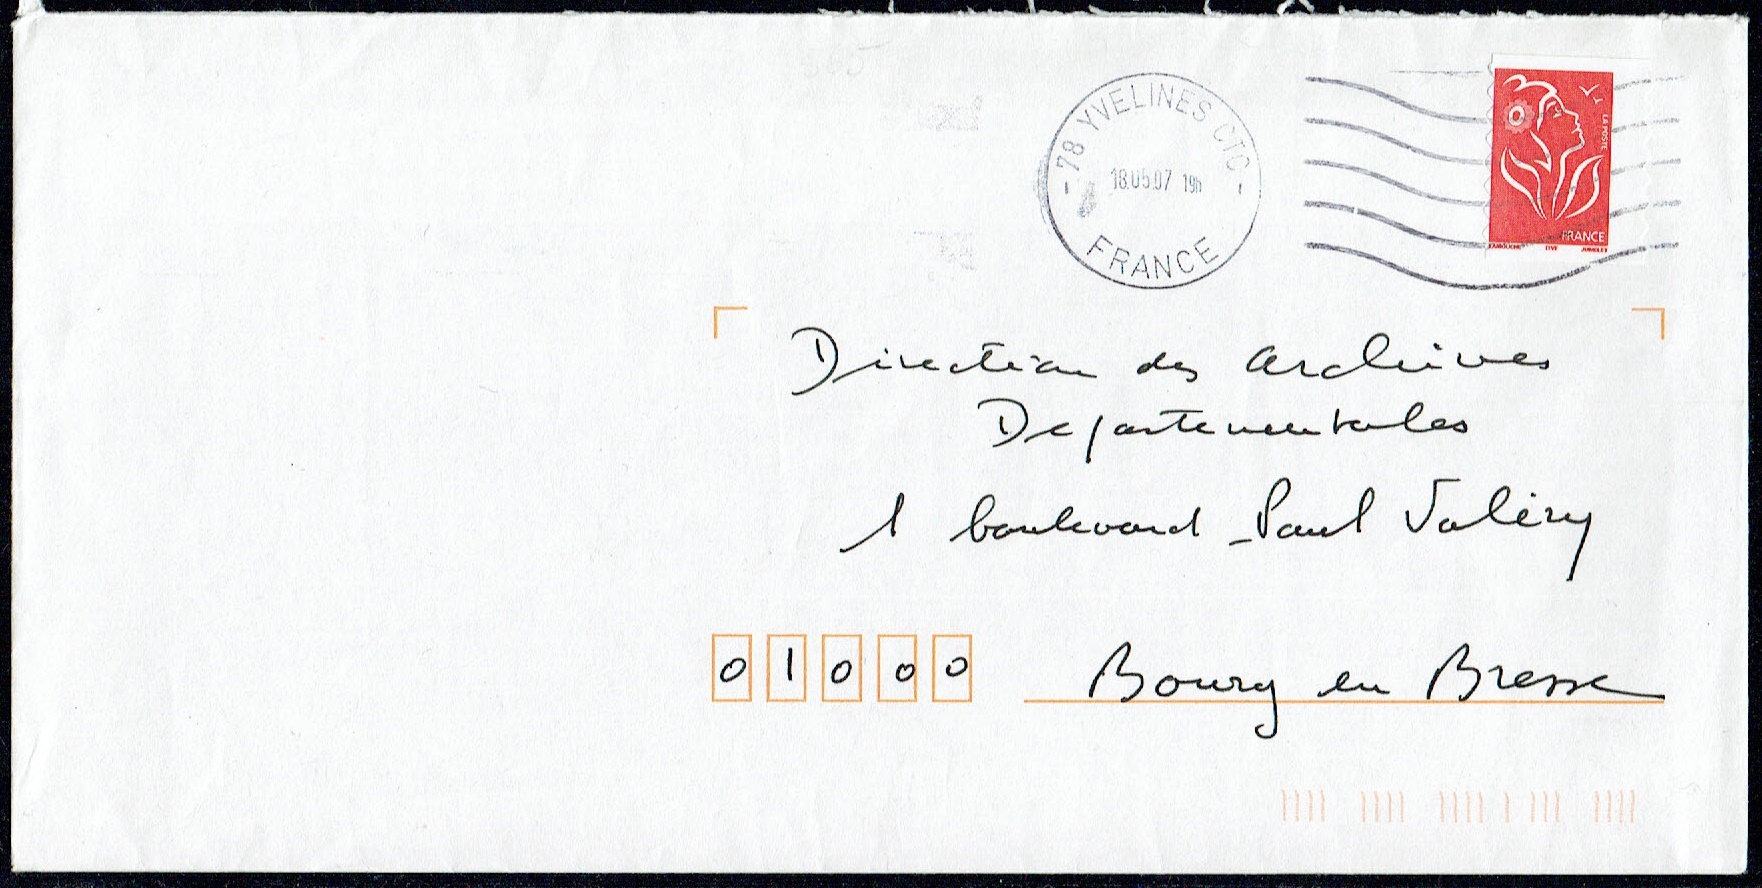 78 YVELINES CTC
18.05.07 19h
FRANCE
LA POSTE
FRANCE
Direction des Archives
Departementales
1 boulevard Paul Valéry
01000 Bourg en Bresse